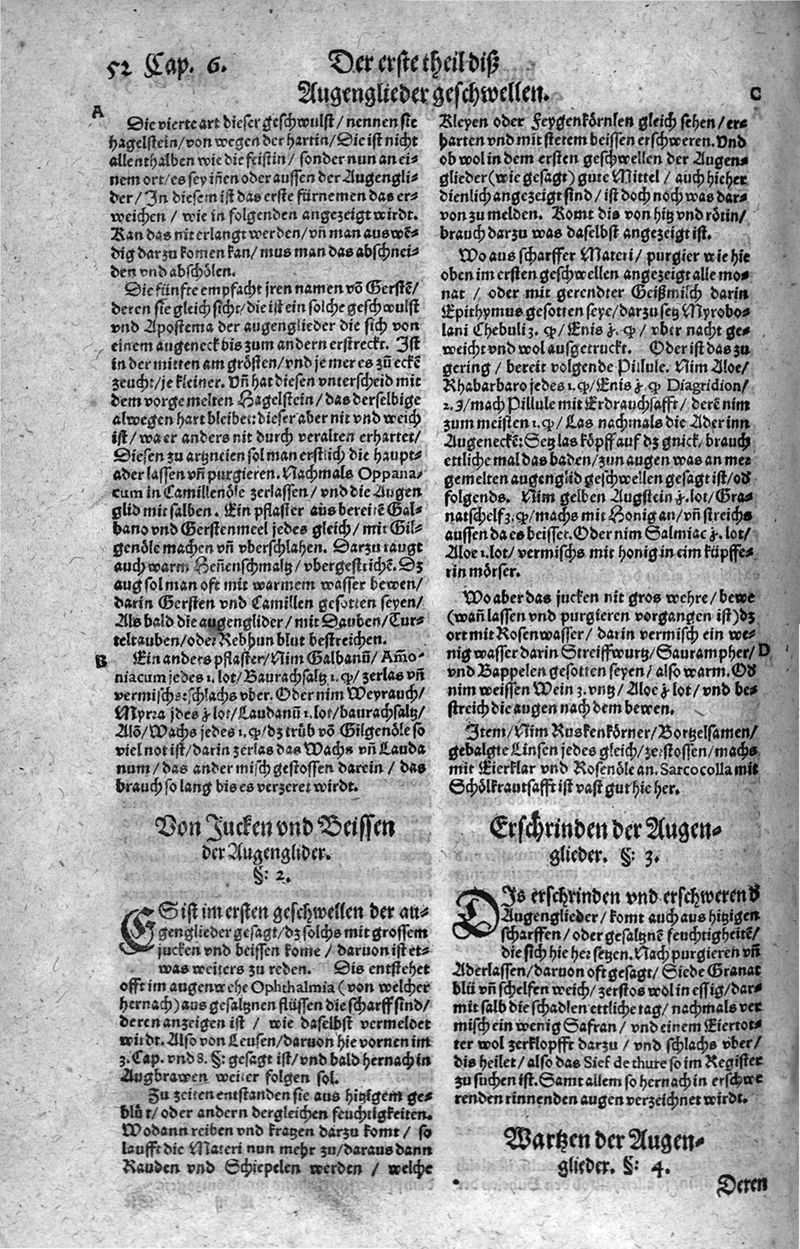 52 Cap. 6.
Der erste theil diß
Augenglieder geschwellen.
A
Die vierte art dieser geschwulst/ nennen sie
hagelstein/ von wegen der hartin/ Die ist nicht
allenthalben wie die feistin/ sonder nun an ei-
nem ort/ es sey iñen oder aussen der Augengli-
der/ In diesem ist das erste fürnemen das er-
weichen/ wie in folgenden angezeigt wirdt.
Kan das nit erlangt werden/ vñ man auswe-
dig darzu komen kan/ mus man das abschnei-
den vnd abschölen.
Die fünfte empfacht jren namen võ Gerstẽ/
deren sie gleich sicht/ die ist ein solche geschwulst
vnd Apostema der augenglieder die sich von
einem augeneck bis zum andern erstreckt. Ist
in der mitten am grösten/ vnd je mer es zũ eckẽ
zeucht/ je kleiner. Vñ hat diesen vnterscheid mit
dem vorgemelten Hagelstein/ das derselbige
alwegen hart bleibet: dieser aber nit vnd weich
ist/ wa er anders nit durch veralten erhartet/
Diesen zu artzneien sol man erstlich die haupt-
ader lassen vñ purgieren. Nachmals Oppana-
cum in Camillenöle zerlassen/ vnd die Augen
glid mit salben. Ein pflaster aus bereitẽ Gal-
bano vnd Gerstenmeel jedes gleich/ mit Gil-
genöle machen vñ vberschlahen. Darzu taugt
auch warm Heñenschmaltz/ vbergestrichẽ. Dz
aug sol man oft mit warmem wasser bewen/
darin Gersten vnd Camillen gesotten seyen/
Als bald die augenglider/ mit Dauben/ Tur-
teltauben/ oder Rebhun blut bestreichen.
B
Ein anders pflaster/ Nim Galbanũ/ Am̃o-
niacum jedes 1. lot/ Baurachsaltz 1. q/ zerlas vñ
vermischs: schlachs vber. Oder nim Weyrauch/
Myrra jdes ɉ. lot/ Laudanũ 1. lot/ baurachsaltz/
Alõ/ Wachs jedes 1. q/ dz trüb võ Gilgenöle so
viel not ist/ darin zerlas das Wachs vñ Lauda
num/ das ander misch gestossen darein/ das
brauch so lang bis es verzeret wirdt.
Von Jucken vnd Beissen
der Augenglider.
§: 2.
ES ist im ersten geschwellen der au-
genglieder gesagt/ dz solchs mit grossem
jucken vnd beissen kome/ daruon ist et-
was weiters zu reden. Dis entstehet
offt im augenwehe Ophthalmia (von welcher
hernach) aus gesaltznen flüssen die scharff sind/
deren anzeigen ist/ wie daselbst vermeldet
wirdt. Also von Leusen/ daruon hie vornen im
3. Cap. vnd 8. §: gesagt ist/ vnd bald hernach in
Augbrawen weiter folgen sol.
Zu zeiten entstanden sie aus hitzigem ge-
blüt/ oder andern dergleichen feuchtigkeiten.
Wo dann reiben vnd kratzen darzu komt/ so
laufft die Materi nun mehr zu/ daraus dann
Rauden vnd Schiepelen werden/ welche
C
Kleyen oder Feygenkörnlen gleich sehen/ er-
harten vnd mit stetem beissen erschweren. Vnd
ob wol in dem ersten geschwellen der Augen-
glieder (wie gesagt) gute Mittel/ auch hieher
dienlich angezeigt sind/ ist doch noch was dar-
von zu melden. Komt dis von hitz vnd rötin/
brauch darzu was daselbst angezeigt ist.
Wo aus scharffer Materi/ purgier wie hie
oben im ersten geschwellen angezeigt alle mo-
nat/ oder mit gerendter Geißmilch darin
Epithymus gesotten seye/ darzu setz Myrobo-
lani Chebuli 3. q/ Enis ɉ. q/ vber nacht ge-
weicht vnd wol ausgetruckt. Oder ist das zu
gering/ bereit volgende Pillule. Nim Aloe/
Rhabarbaro jedes 1. q/ Enis ɉ. q Diagridion/
2. ʒ/ mach Pillule mit Erdrauchsafft/ derẽ nim
zum meisten 1. q/ Las nachmals die Ader inn
Augeneckẽ: Setz las köpff auf dz gnick/ brauch
ettliche mal das baden/ zun augen was an mer
gemelten augenglid geschwellen gesagt ist/ od
folgends. Nim gelben Augstein ɉ. lot/ Gra-
natschelf 3. q/ machs mit Honig an/ vñ streichs
aussen da es beisset. Oder nim Salmiac ɉ. lot/
Aloe 1. lot/ vermischs mit honig in eim küpffe-
rin mörser.
Wo aber das jucken nit gros wehre/ bewe
(wañ lassen vnd purgieren vorgangen ist) dz
ort mit Rosenwasser/ darin vermisch ein we-
nig wasser darin Streiffwurtz/ Saurampher/
D
vnd Bappelen gesotten seyen/ also warm. Od
nim weissen Wein 3. vntz/ Aloe ɉ lot/ vnd be-
streich die augen nach dem bewen.
Item/ Nim Ruskenkörner/ Bortzelsamen/
gebalgte Linsen jedes gleich/ zerstossen/ machs
mit Eierklar vnd Rosenöle an. Sarcocolla mit
Schölkrautsafft ist vast gut hie her.
Erschrinden der Augen-
glieder. §: 3.
DIs erschrinden vnd erschweren d
Augenglieder/ komt auch aus hitzigen
scharffen/ oder gesaltznẽ feuchtigkeitẽ/
die sich hie her setzen. Nach purgieren vñ
Aderlassen/ daruon oft gesagt/ Siede Granat
blü vñ schelfen weich/ zerstos wol in essig/ dar-
mit salb die schadlen ettliche tag/ nachmals ver
misch ein wenig Safran/ vnd einem Eiertot-
ter wol zerklopfft darzu/ vnd schlachs vber/
dis heilet/ also das Sief de thure so im Register
zu suchen ist. Samt allem so hernach in erschwe
renden rinnenden augen verzeichnet wirdt.
Wartzen der Augen-
glieder. §: 4.
Deren